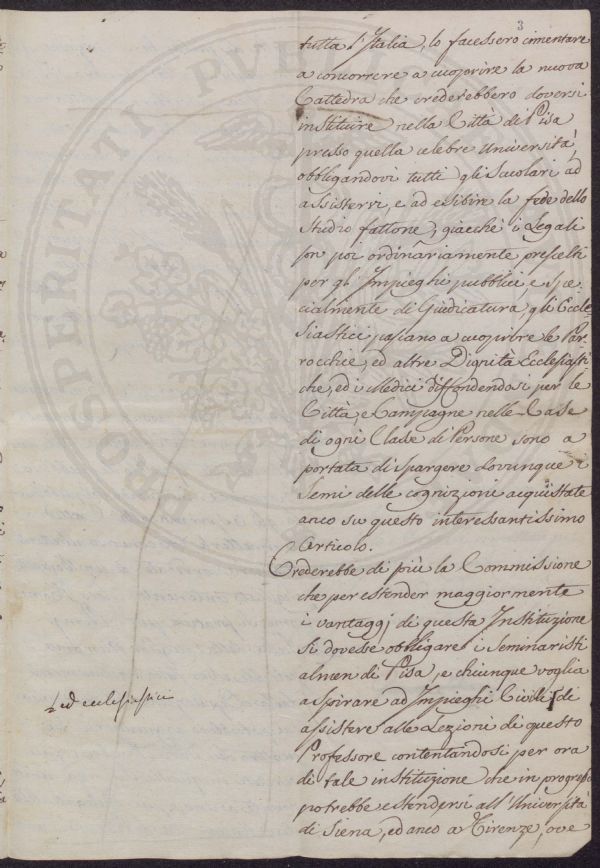 3
tutta l'Italia, lo facessero cimentare
a concorrere a cuoprire la nuova
Cattedra che crederebbero doversi
instituire nella Città di Pisa
presso quella celebre Università,
obbligandovi tutti gli Scuolari ad
assistervi, e ad esibire la fede dello
Studio fattone, giacchè i Legali
son poi ordinariamente prescelti
per gl'Impieghi pubblici e spe-
cialmente di Giudicatura, gli Eccle-
siastici passano a cuoprire le Par-
rocchie, ed altre Dignità Ecclesiasti
che, ed i Medici diffondendosi per le
Città, e Campagne nelle Case
di ogni Classe di Persone sono a
portata di spargere dovunque i
Semi delle cognizioni acquistate
anco su questo interessantissimo
Articolo.
Crederebbe di più la Commissione
che per estender maggiormente
i vantaggj di questa Instituzione
si dovesse obbligare i Seminaristi
almen di Pisa, e chiunque voglia
aspirare ad Impieghi Civili di
ed ecclesiastici
assistere alle Lezioni di questo
Professore contentandosi per ora
di tale instituzione che in progresso
potrebbe estendersi all'Università
di Siena, ed anco a Firenze, ove
PROSPERITATI PUBLICAE